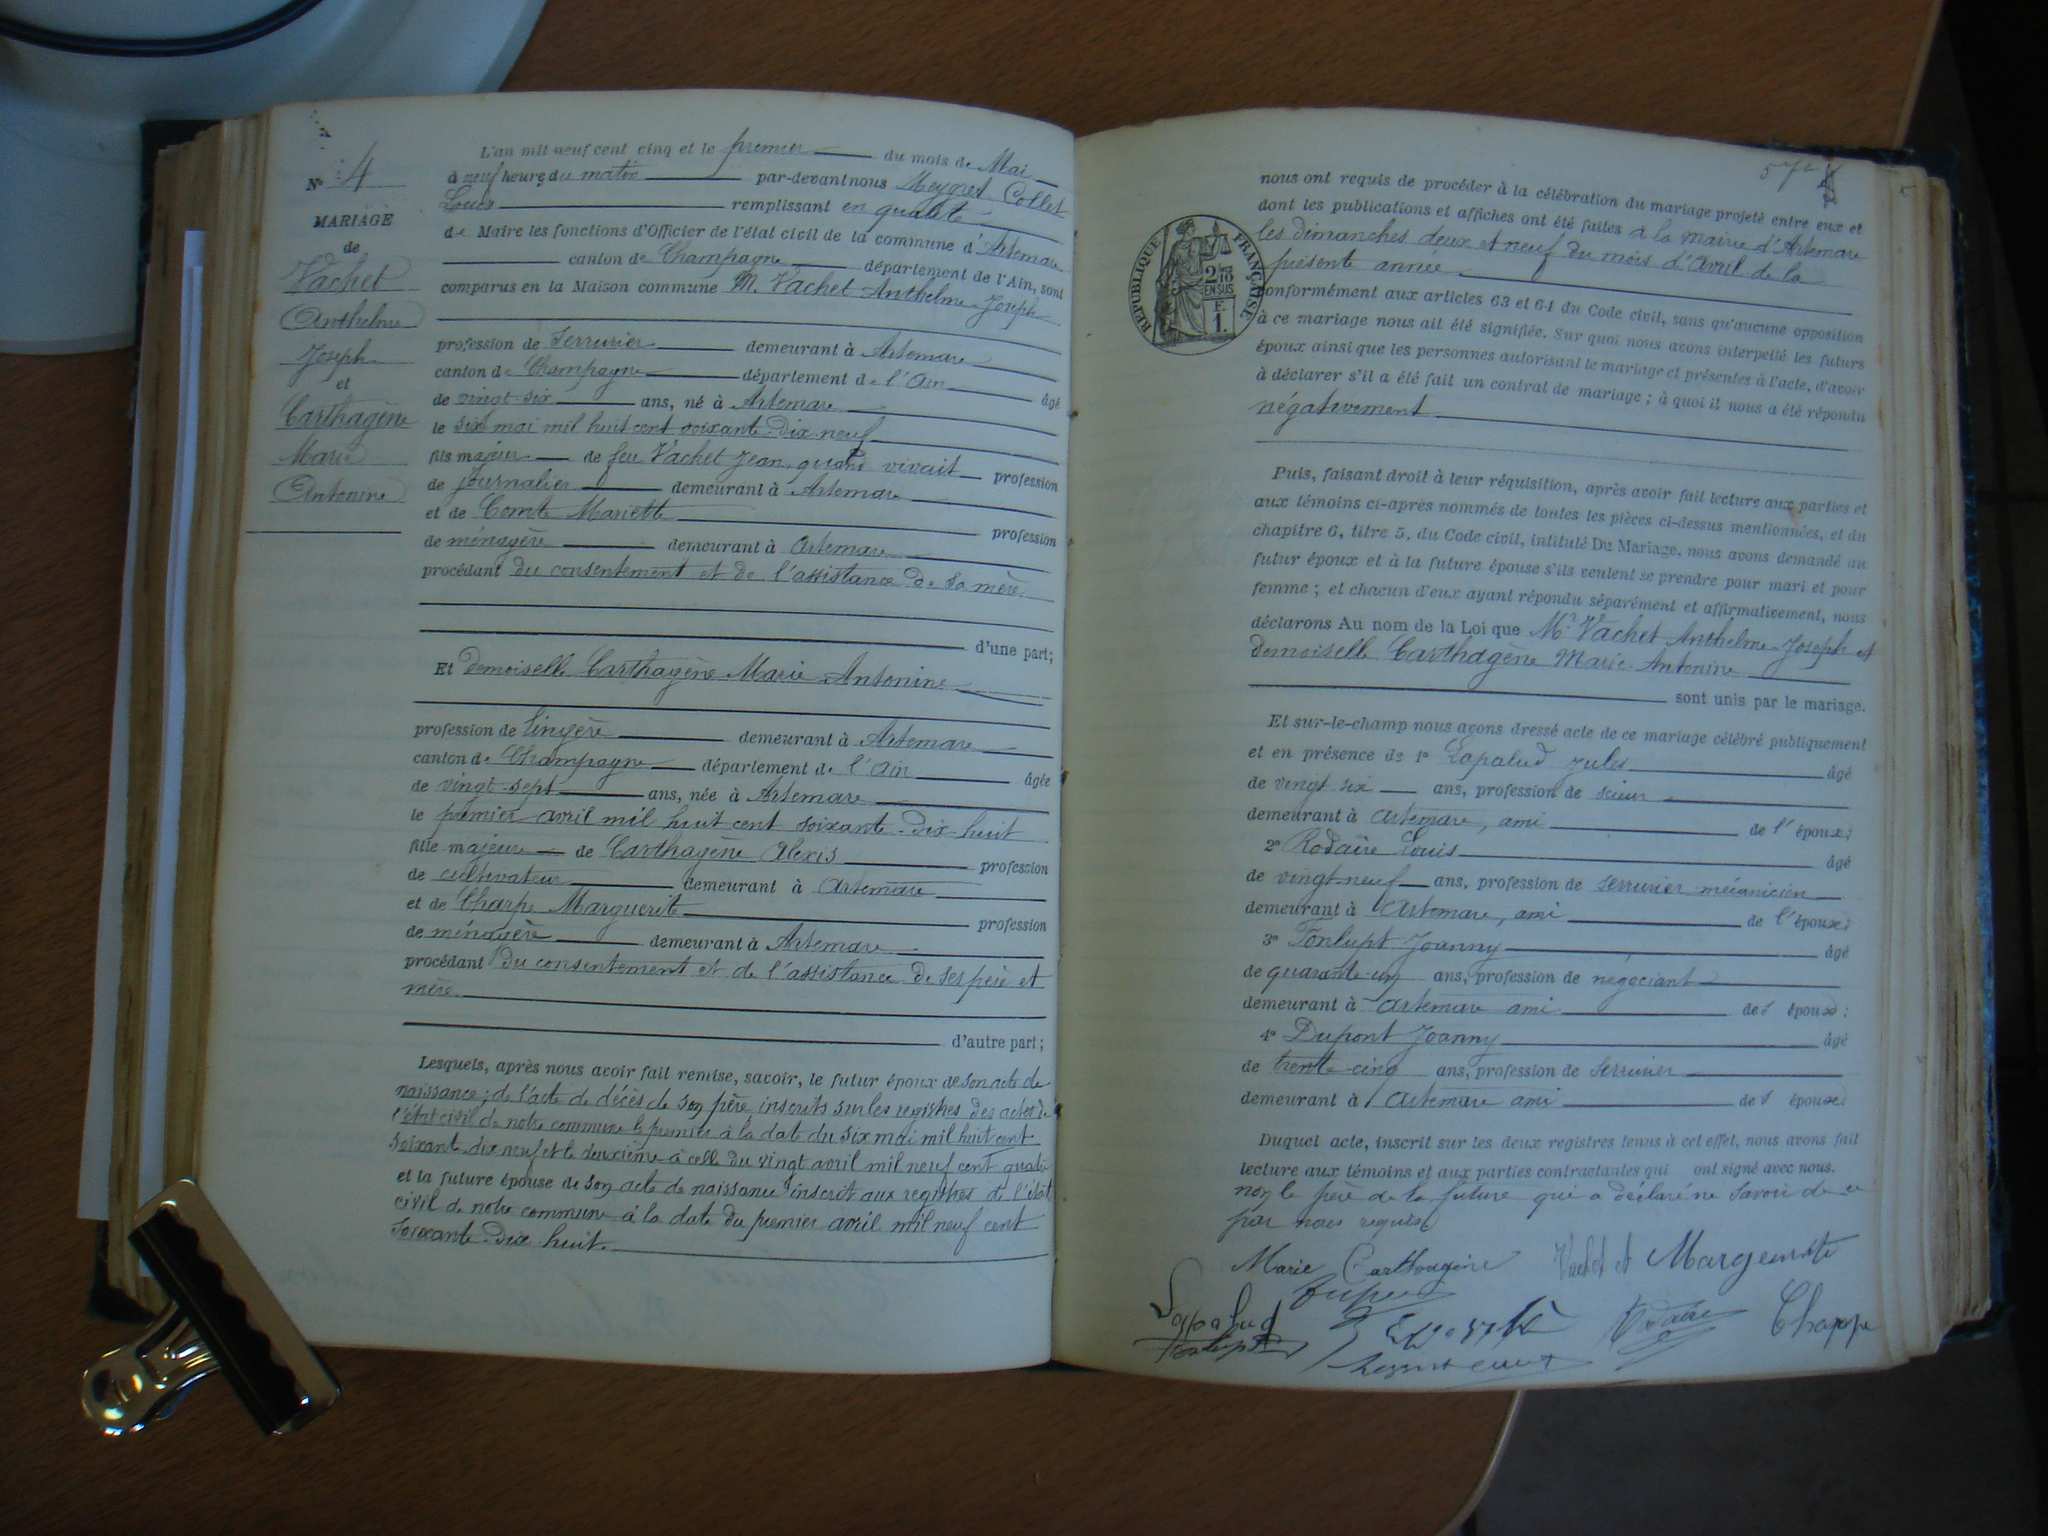 N° 4
MARIAGE
de
Vachet
Anthelme
Joseph
et
Carthagène
Marie
Antonine
L'an mil neuf cent cinq et le premier du mois de Mai
à neuf heures du matin par-devant nous Meygret Collet
Louis remplissant en qualité
de Maire les fonctions d'Officier de l'état civil de la commune d'Artemare
canton de Champagne département de l'Ain, sont
comparus en la Maison commune M. Vachet Anthelme-Joseph
profession de Serrurier demeurant à Artemare
canton de Champagne département de l'Ain âgé
de vingt-six ans, né à Artemare
le six mai mil huit cent soixante-dix-neuf
fils majeur de feu Vachet Jean, quand vivait profession
de journalier demeurant à Artemare
et de Comte Mariette profession
de ménagère demeurant à Artemare
procédant du consentement et de l'assistance de sa mère.
d'une part;
Et demoiselle Carthagène Marie-Antonine
profession de lingère demeurant à Artemare
canton de Champagne département de l'Ain âgée
de vingt-sept ans, née à Artemare
le premier avril mil huit cent soixante-dix-huit
fille majeure de Carthagène Alexis profession
de cultivateur demeurant à Artemare
et de Charpe Marguerite profession
de ménagère demeurant à Artemare
procédant du consentement et de l'assistance de ses père et
mère
d'autre part;
Lesquels, après nous avoir fait remise, savoir, le futur époux de son acte de
naissance; de l'acte de décès de son père inscrits sur les registres des actes de
l'état civil de notre commune le premier à la date du six mai mil huit cent
soixante-dix-neuf et le deuxième à celle du vingt avril mil neuf cent quatre
et la future épouse de son acte de naissance inscrit aux registres de l'état
civil de notre commune à la date du premier avril mil neuf cent
soixante-dix huit.
57
RÉPUBLIQUE FRANÇAISE
2/10
EN SUS
F.
1.
nous ont requis de procéder à la célébration du mariage projeté entre eux et
dont les publications et affiches ont été faites à la mairie d'Artemare
les dimanches deux et neuf du mois d'Avril de la
présente année
conformément aux articles 63 et 64 du Code civil, sans qu'aucune opposition
à ce mariage nous ait été signifiée. Sur quoi nous avons interpellé les futurs
époux ainsi que les personnes autorisant le mariage et présentes à l'acte, d'avoir
à déclarer s'il a été fait un contrat de mariage; à quoi il nous a été répondu
négativement
Puis, faisant droit à leur réquisition, après avoir fait lecture aux parties et
aux témoins ci-après nommés de toutes les pièces ci-dessus mentionnées, et du
chapitre 6, titre 5, du Code civil, intitulé Du Mariage, nous avons demandé au
futur époux et à la future épouse s'ils veulent se prendre pour mari et pour
femme; et chacun d'eux ayant répondu séparément et affirmativement, nous
déclarons Au nom de la Loi que Mr Vachet Anthelme-Joseph et
demoiselle Carthagène Marie-Antonine
sont unis par le mariage.
Et sur-le-champ nous avons dressé acte de ce mariage célébré publiquement
et en présence de 1° Lapalud Jules âgé
de vingt-six ans, profession de scieur
demeurant à Artemare, ami de l'époux;
2° Rodaire Louis âgé
de vingt-neuf ans, profession de serrurier mécanicien
demeurant à Artemare, ami de l'époux;
3° Tonlupt Joanny âgé
de quarante-un ans, profession de négociant
demeurant à Artemare ami de l'époux;
4° Dupont Joanny âgé
de trente-cinq ans, profession de serrurier
demeurant à Artemare ami de l'époux;
Duquel acte, inscrit sur les deux registres tenus à cet effet, nous avons fait
lecture aux témoins et aux parties contractantes qui ont signé avec nous.
non le père de la future qui a déclaré ne savoir de ce
par nous requis
Marie Carthagène Vachet et Margerite
Lapalud Rodaire Chappe